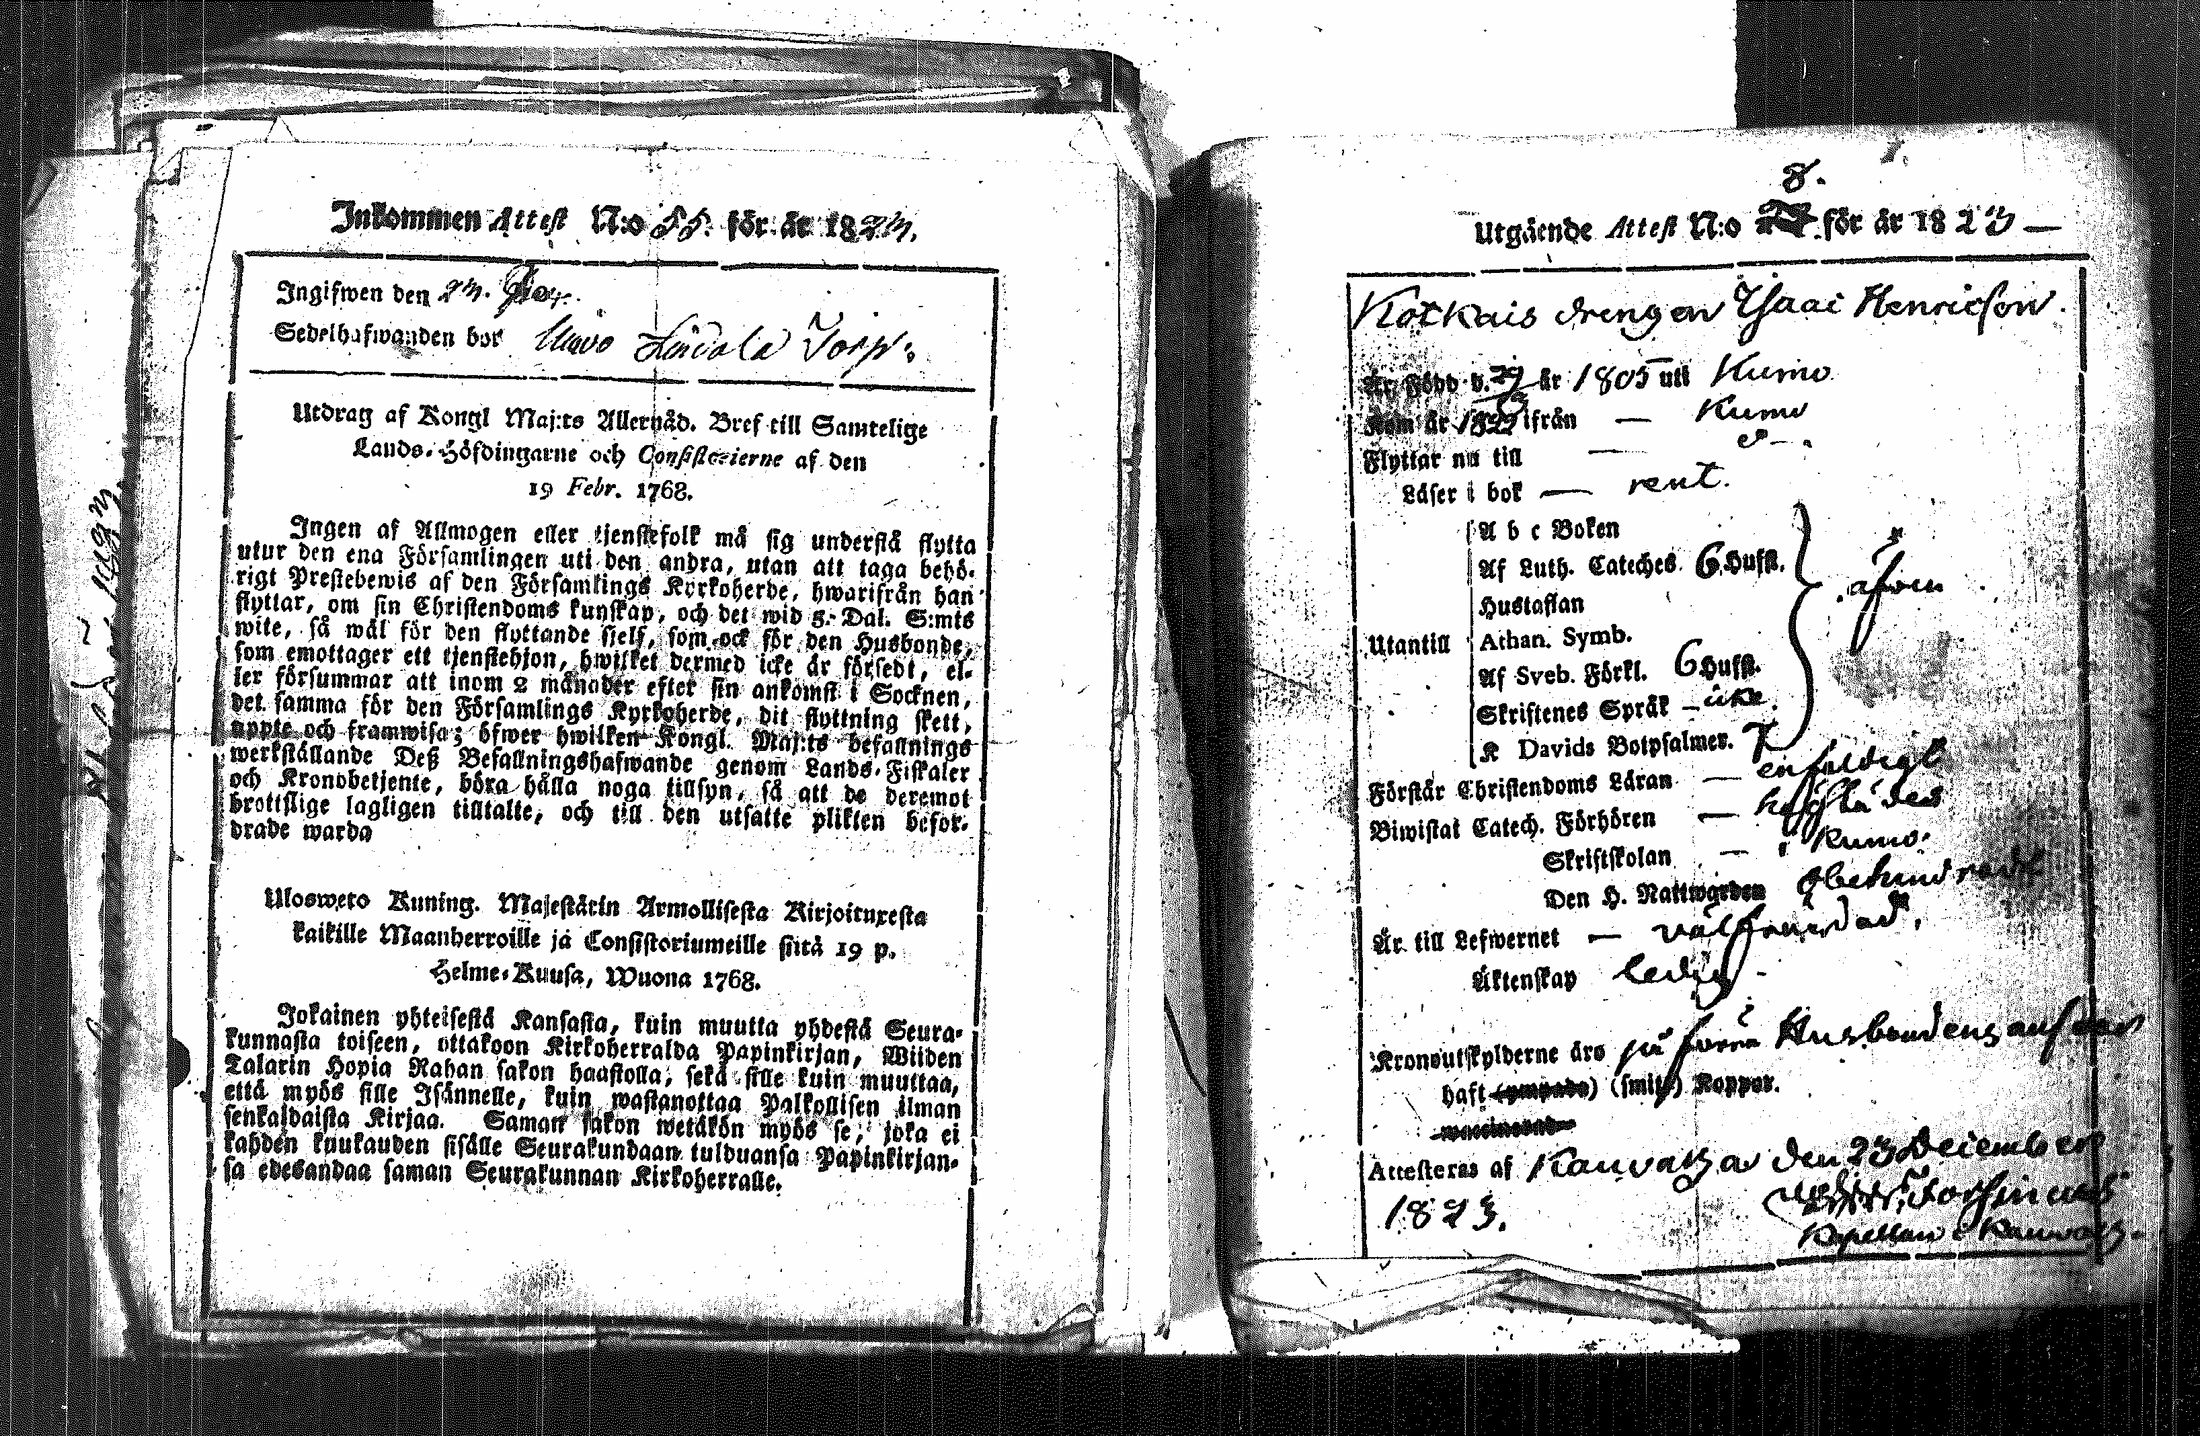 Inkommen Attest N:o 55. för år 1824.
Ingifwen den 24.
Sedelhafwanden bor Torp.
Utdrag af Kongl Maj:ts Allernåd. Bref till Samtelige
Lands-Höfdingarne och Consistorierne af den
19 Febr. 1768.
Ingen af Allmogen eller tjenstefolk må sig understå flytta
utur den ena Församlingen uti den andra, utan att taga behö-
rigt Prestebewis af den Församlings Kyrkoherde, hwarifrån han
flyttar, om sin Christendoms kunskap, och det wid 5. Dal. S:mts
wite, så wäl för den flyttande sielf, som ock för den Husbonde,
som emottager ett tjenstehjon, hwilket dermed icke är försedt, el-
ler försummar att inom 2 månader efter sin ankomst i Socknen,
det samma för den Församlings Kyrkoherde, dit flyttning skett,
uppte och framwisa; öfwer hwilken Kongl. Maj:ts befallnings
werkställande Deß Befallningshafwande genom Lands-Fiskaler
och Kronobetjente, böra hålla noga tillsyn, så att de deremot
brottslige lagligen tilltalte, och till den utsatte plikten befor-
drade warda
Ulosweto Kuning. Majestätin Armollisesta Kirjoituxesta
kaikille Maanherroille ja Consistoriumeille siitä 19 p.
Helme-Kuusa, Wuona 1768.
Jokainen yhteisestä Kansasta, kuin muutta yhdestä Seura-
kunnasta toiseen, ottakoon Kirkoherralda Papinkirjan, Wiiden
Talarin Hopia Rahan sakon haastolla, sekä sille kuin muuttaa,
että myös sille Isännelle, kuin wastanottaa Palkollisen ilman
senkaldaista Kirjaa. Saman sakon wetäkön myös se, joka ei
kahden kuukauden sisälle Seurakundaan tulduansa Papinkirjan-
sa edesandaa saman Seurakunnan Kirkoherralle.
8.
Utgående Attest N:o för år 1823 —
Kotkais drengen Isaac Henricson.
Är Född d. 29 år 1805 uti Kumo
Kom år 1822 ifrån — Kumo
Flyttar nu till —
Läser i bok — rent.
A b c Boken
Af Luth. Cateches 6 Hufst.
Hustaflan
äfwen
Utantill
Athan. Symb.
Af Sveb. Förkl. 6 Hufst.
Skriftenes Språk — icke
K Davids Botpsalmer. 7
Förstår Christendoms Läran — enfaldigt
Biwistat Catech. Förhören —
Skriftskolan — i Kumo.
Den H. Nattwarden obehindradt
Är till Lefwernet — välfrejdad.
Äktenskap ledig.
Kronoutskylderne äro på förra Husbondens answar
haft (ympade) (smitt) Koppor.
waccinerad
Attesteras af Kauvatza den 23 December
1823.
Kapellan i Kauvatz.